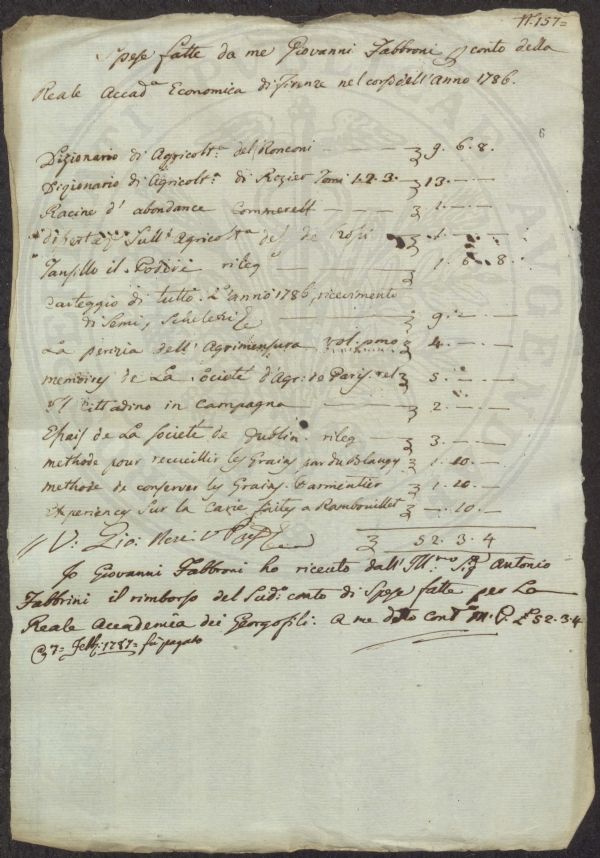 N. 157=
Spese fatte da me Giovanni Fabbroni p conto della
Reale Accad.a Economica di Firenze nel corso dell'Anno 1786.
6
Dizionario di Agricolt.a del Ronconi 9. 6. 8.
Dizionario di Agricolt.a di Rozier Tomi 1. 2. 3. 13. — —
Racine d'abondance Commerell 1. — —
Sull'Agricolt.a del de 1. — —
Tansillo il Podere rileg.o 1. 6. 8.
Carteggio di tutto L'anno 1786, ricevimento
di Semi, 9. — —
La perizia dell'Agrimensura vol. pmo 4. — —
memoires de La Societé d'Agr. de Paris. rel 5. — —
Il Cittadino in Campagna 2. — —
Essais de La Societé de Dublin rileg 3. — —
methode pour recueillir les Grains par du Blaugy 1. 10. —
methode de conserver les Grains Parmentier 1. 10. —
Experiences Sur la Carie faites a Rambouillet — 10. —
V: Gio: Neri 52. 3. 4
Io Giovanni Fabbroni ho ricevuto dall'Ill.mo S.r Antonio
Fabbrini il rimborso del Sud.o conto di Spese fatte per La
Reale Accademia dei Georgofili: A me detto cont M. P. L 52. 3. 4
7= Febb. 1787= fù pagato